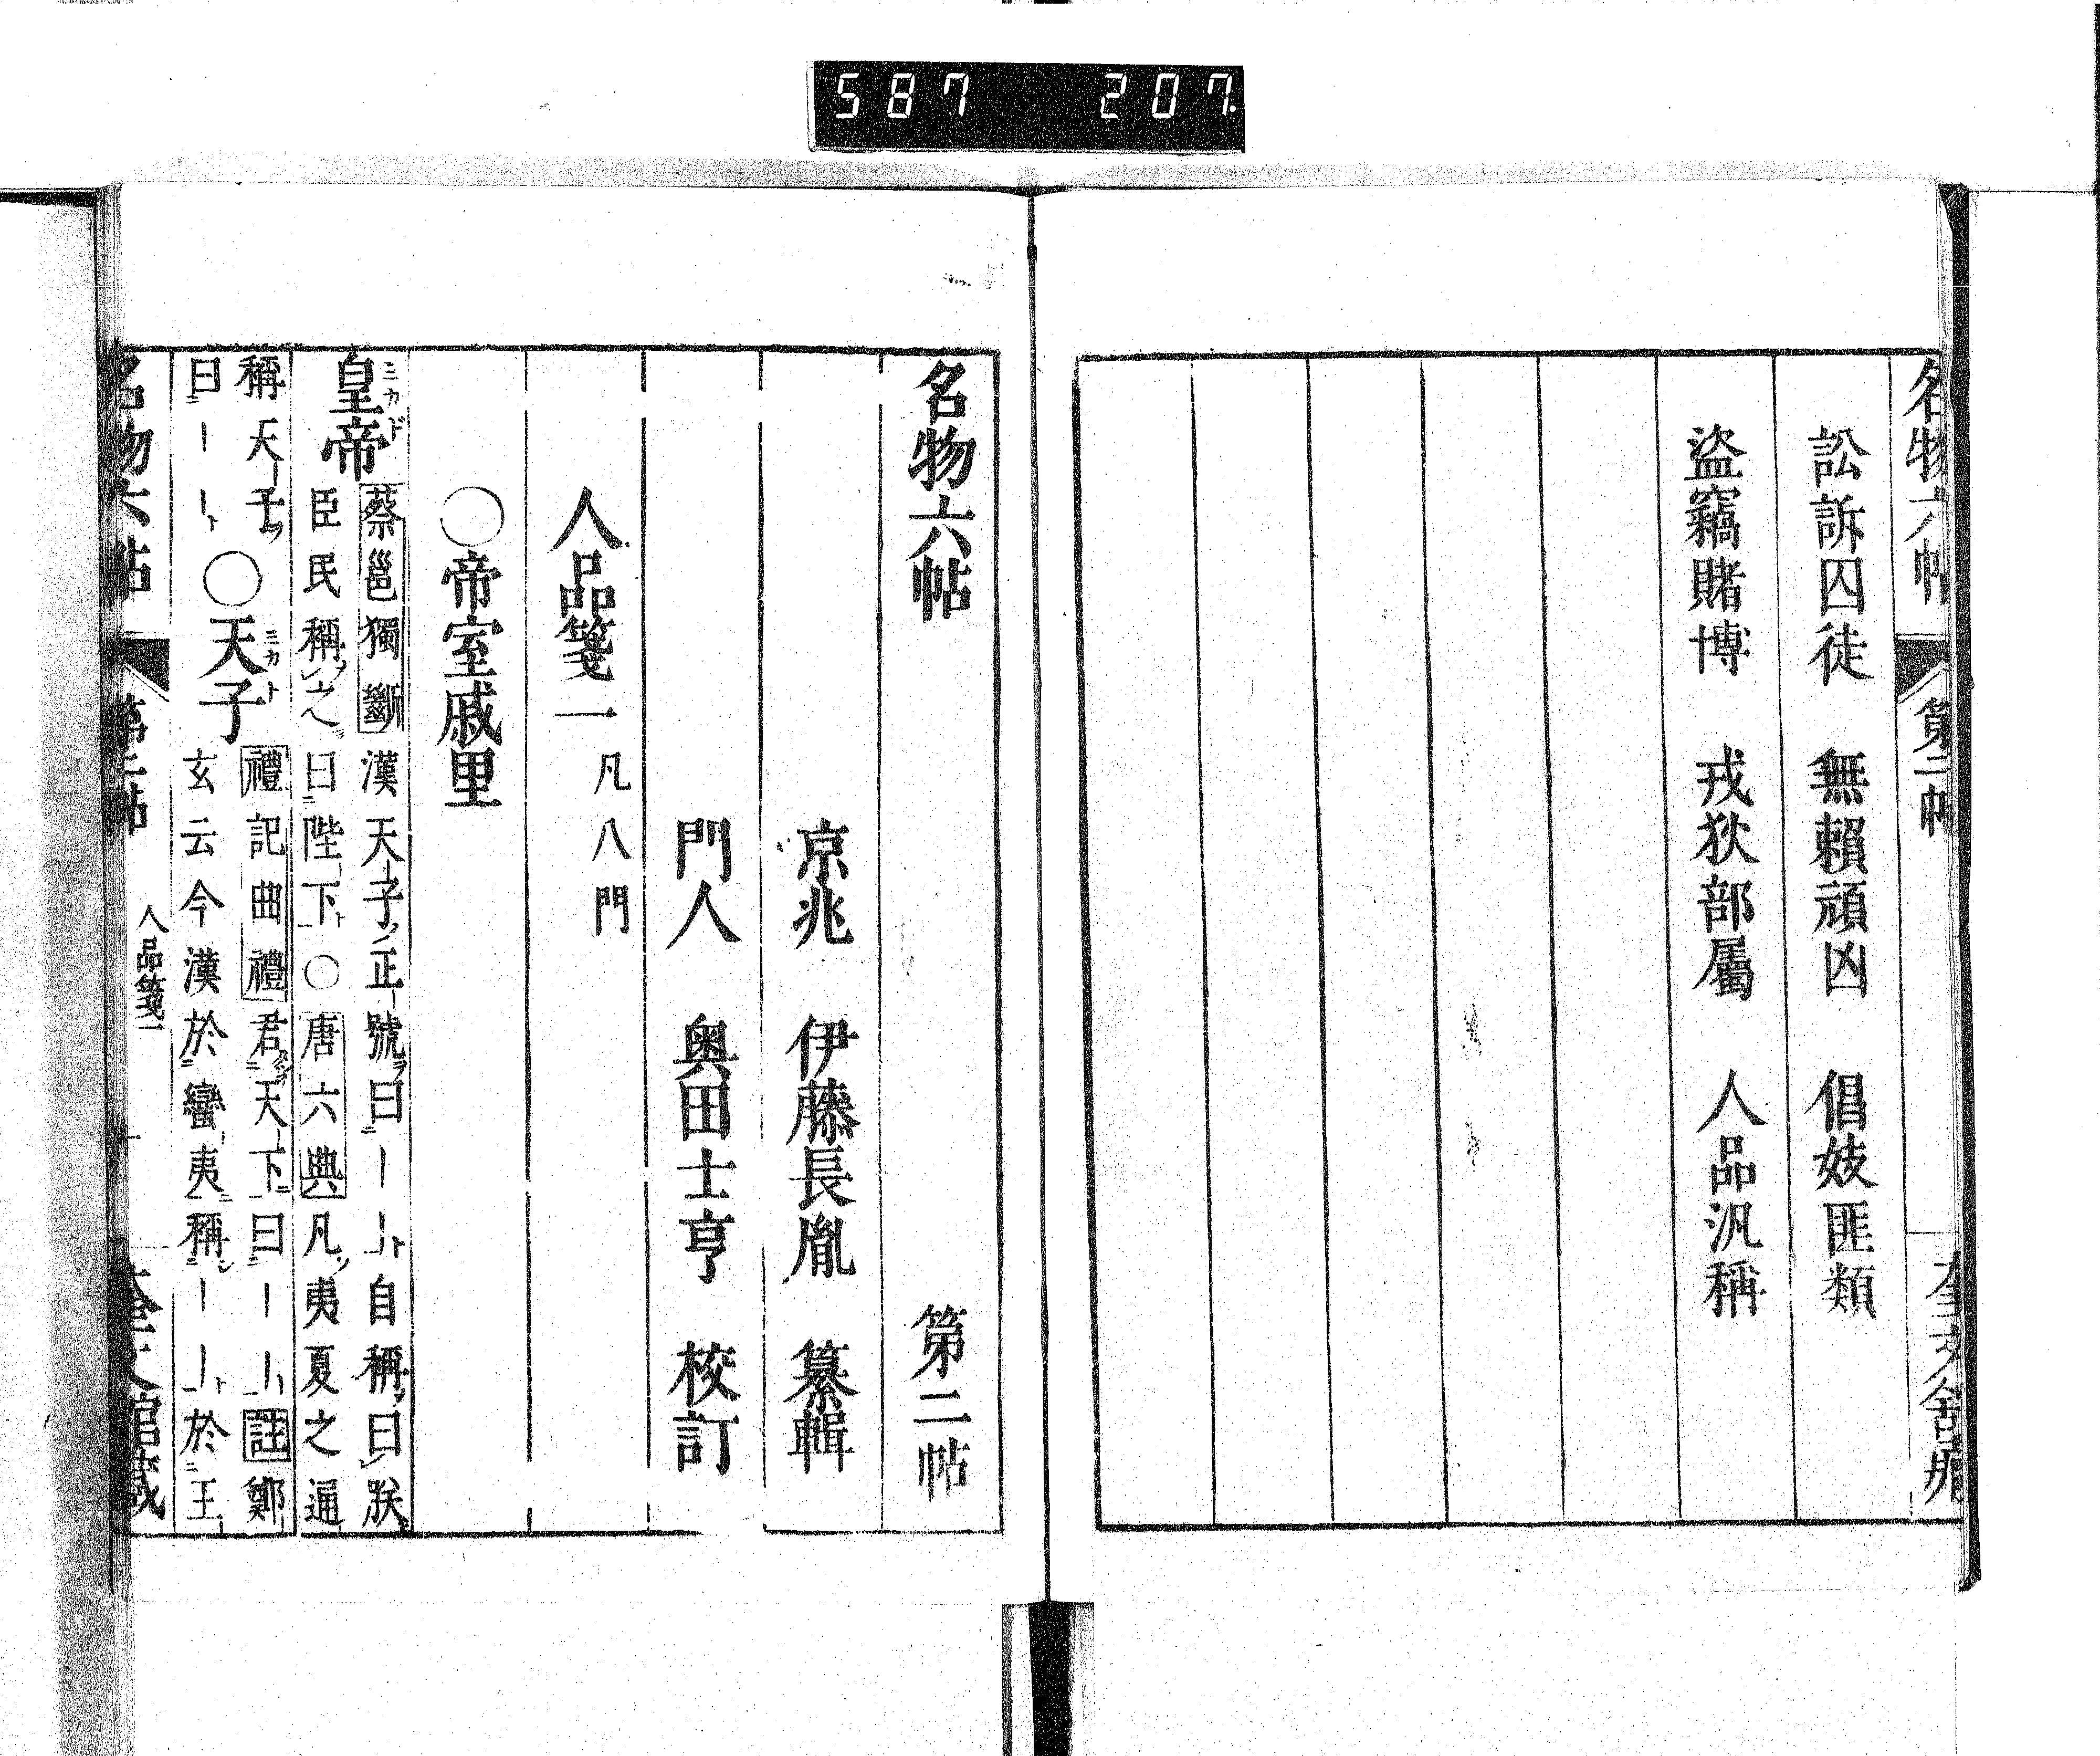 587 207.
名物六帖 第二帖
訟訴囚徒 無賴頑凶 倡妓匪類
盜竊賭博 戎狄部屬 人品汎稱
名物六帖 第二帖
京兆 伊藤長胤 纂輯
門人 奥田士亨 校訂
人品箋一 凡八門
〇帝室戚里
皇帝 ミカド
蔡邕獨斷漢天子ノ正號ヲ曰ニ〡〡ト自稱ヲ曰朕
臣民稱ヲ之ヘ曰ニ陛下ト〇唐六典凡ソ夷夏之通
稱天子ヲ
禮記曲禮君天下曰〡〡註鄭
曰〡〡ト〇天子 ミカト
玄云今漢於蠻夷稱〡〡ト於王
名物六帖 第二帖 人品箋一 奎文館藏